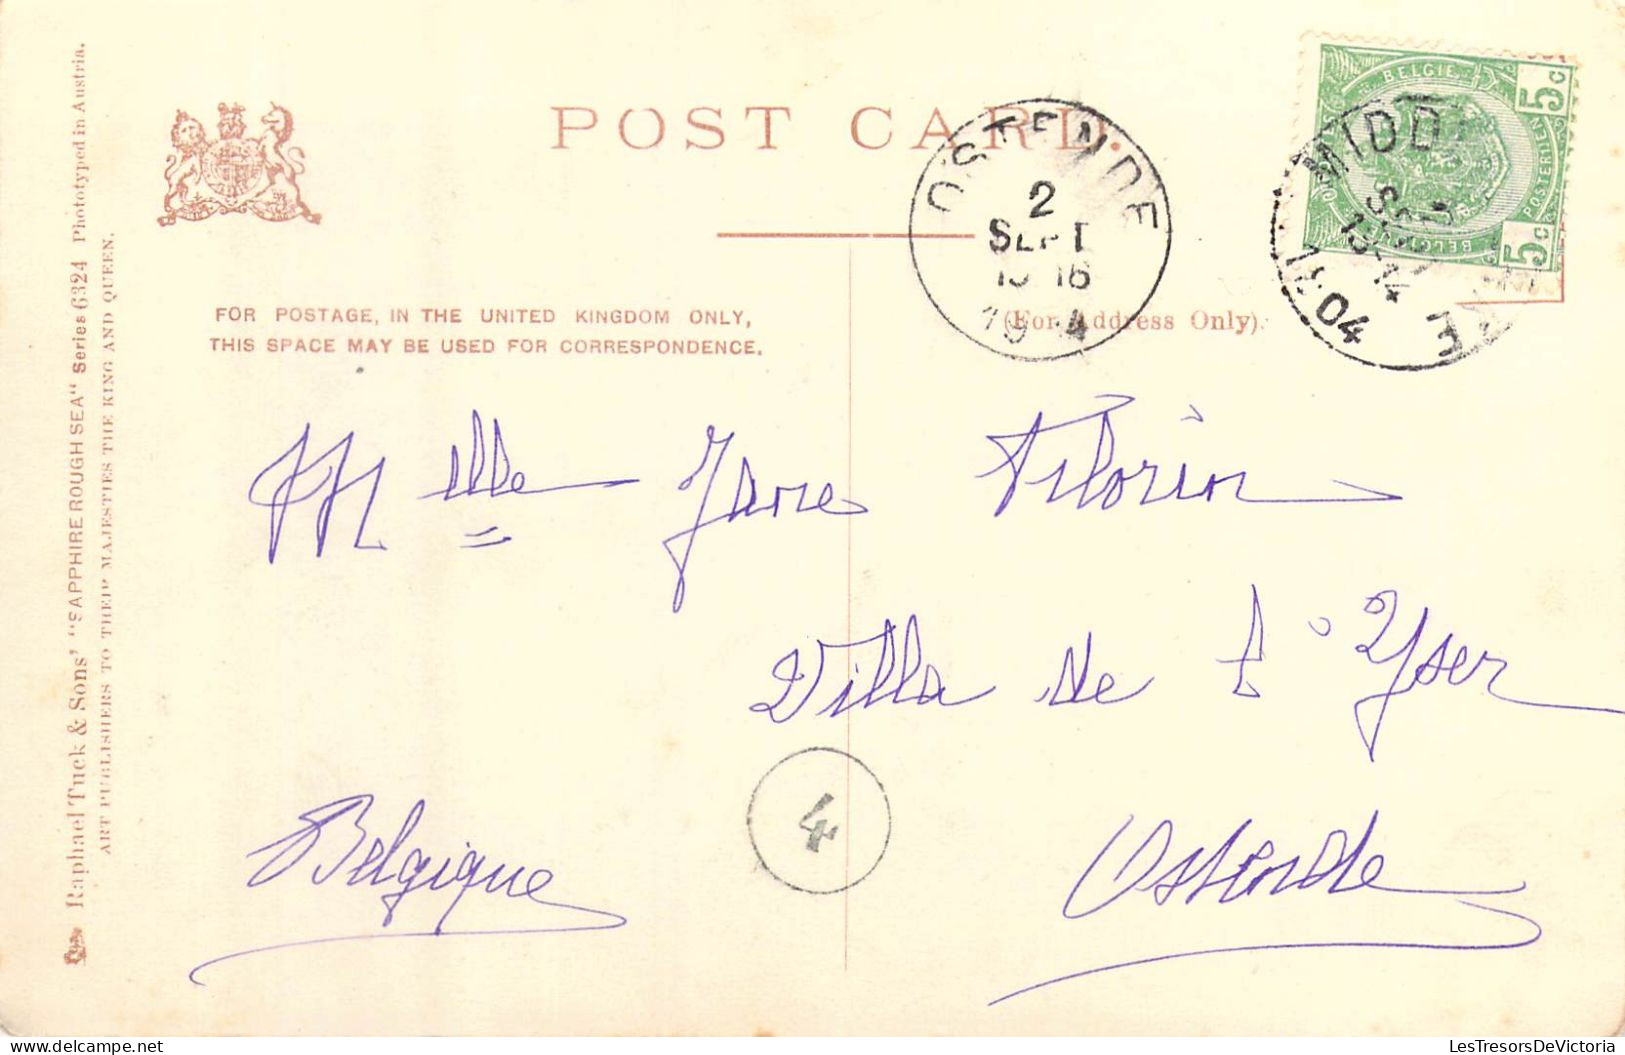 POST CARD.
FOR POSTAGE, IN THE UNITED KINGDOM ONLY,
THIS SPACE MAY BE USED FOR CORRESPONDENCE.
(For Address Only).
OSTENDE
2
SEPT
19 4
BELGIE
5c
5c
POSTERIJEN
BELGIQUE
MIDD KE
13-14
04
Mlle Jane
Villa de l'Yser
Ostende
Belgique
4
Raphael Tuck & Sons' "SAPPHIRE ROUGH SEA" Series 6324 Phototyped in Austria.
ART PUBLISHERS TO THEIR MAJESTIES THE KING AND QUEEN.
LesTresorsDeVictoria
www.delcampe.net